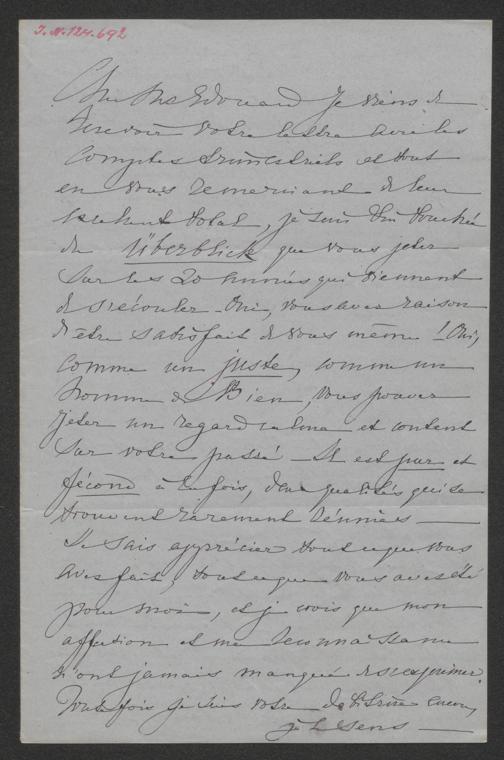 I.N. 124.692
Cher Edouard Je viens de
recevoir votre lettre avec les
Comptes trimestriels et tout
en vous remerciant de leur
total, je suis très touchée
du Überblick que vous jetez
sur les 20 années qui viennent
de s'écouler. Oui, vous avez raison
d'être satisfait de vous même! Oui,
comme un juste, comme un
homme de Bien, vous pouvez
jeter un regard calme et content
sur votre passé — Il est pur et
fécond à la fois, deux qualités qui se
trouvent rarement réunies —
Je sais apprécier tout ce que vous
avez fait, tout ce que vous avez été
pour moi, et je crois que mon
affection et ma reconnaissance
n'ont jamais manqué de s'exprimer.
Toutefois je suis votre débitrice encore,
je le sens —